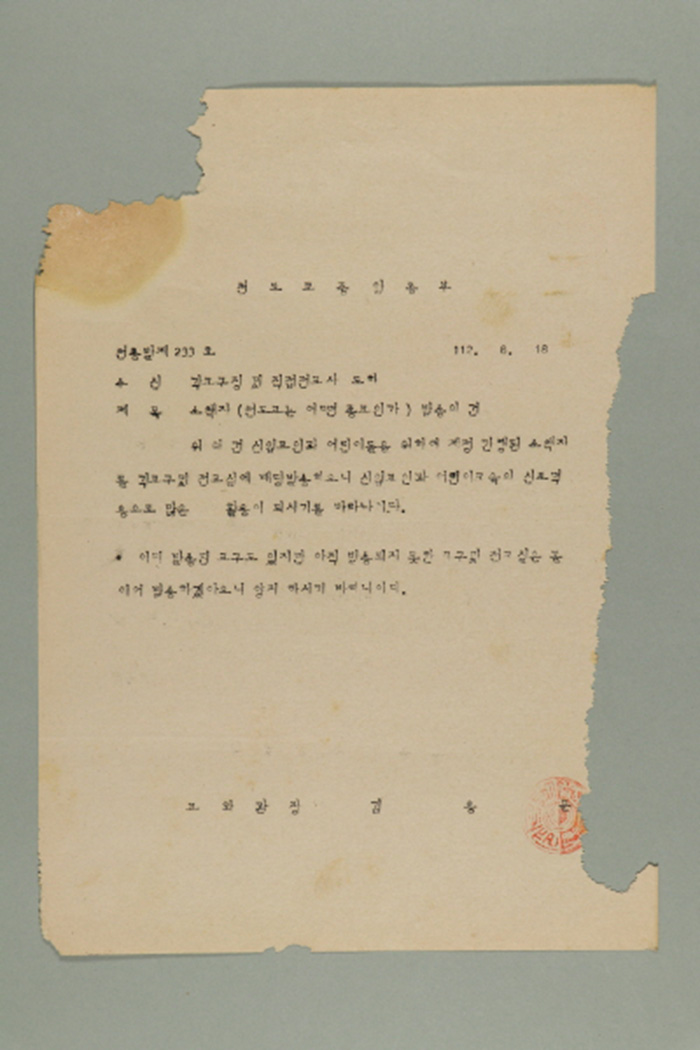 천도교중앙총부
천총발제 233 호 112. 8. 18
수 신 각교구장 및 직접전교사 도하
제 목 소책자 (천도교는 어떠한 종교인가) 발송의 건
위 의 건 신입교인과 어린이들을 위하여 제정 간행된 소책자
를 각교구및 전교실에 배당발송하오니 신입교인과 어린이교육의 신조
용으로 많은 활용이 되시기를 바라나이다.
이미 발송된 교구도 있지만 아직 발송되지 못한 교구및 전교실은 곧
이어 발송하겠아오니 양지 하시기 바라나이다.
교 화 관 장 김 응